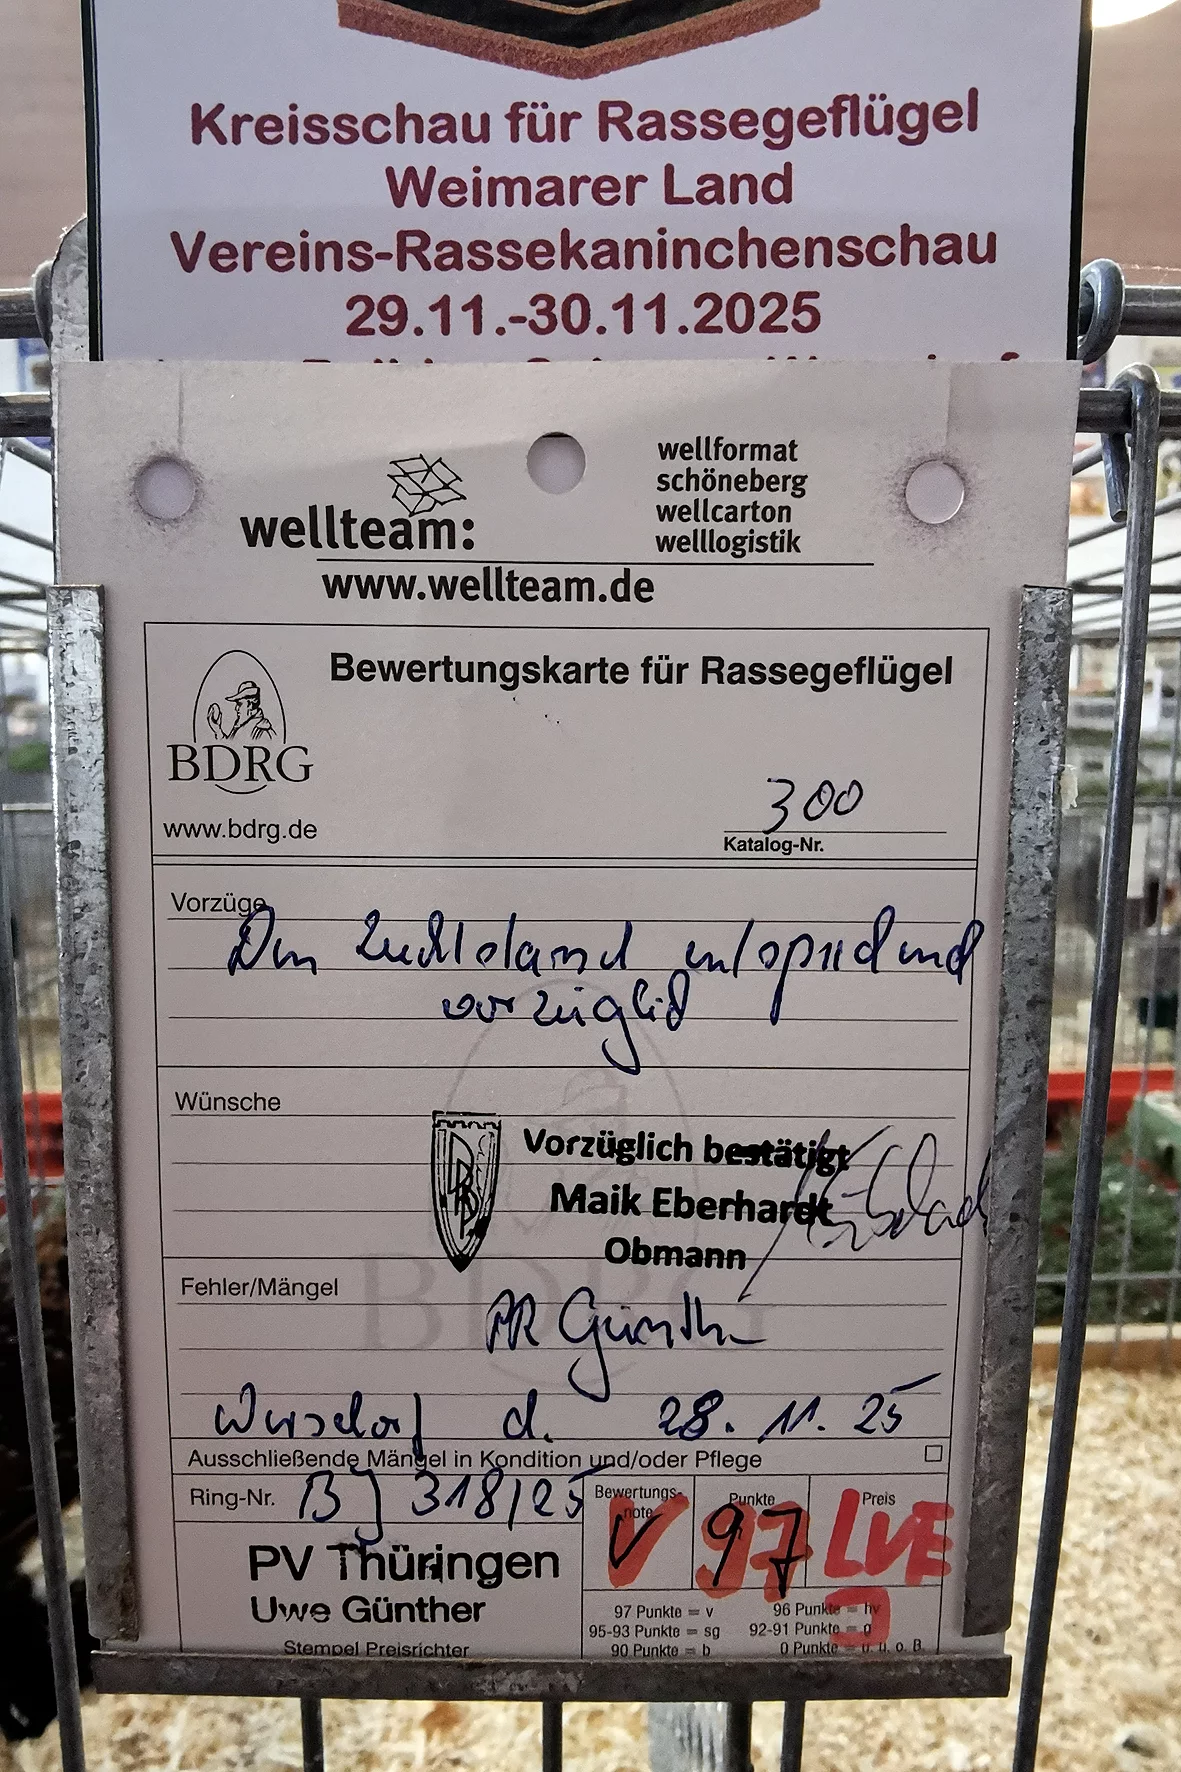 Kreisschau für Rassegeflügel
Weimarer Land
Vereins-Rassekaninchenschau
29.11.-30.11.2025
wellteam:
wellformat
schöneberg
wellcarton
welllogistik
www.wellteam.de
Bewertungskarte für Rassegeflügel
BDRG
www.bdrg.de
300
Katalog-Nr.
Vorzüge
Dem Zuchtstand entsprechend
vorzüglich
Wünsche
Vorzüglich bestätigt
Maik Eberhardt
Obmann
Fehler/Mängel
BDRG
PR Günther
d. 28.11.25
Ausschließende Mängel in Kondition und/oder Pflege
Ring-Nr. BJ 318/25
Bewertungs-
note
v
Punkte
97
Preis
LVE
J
PV Thüringen
Uwe Günther
Stempel Preisrichter
97 Punkte = v
96 Punkte = hv
95-93 Punkte = sg
92-91 Punkte = g
90 Punkte = b
0 Punkte = u. u. o. B.